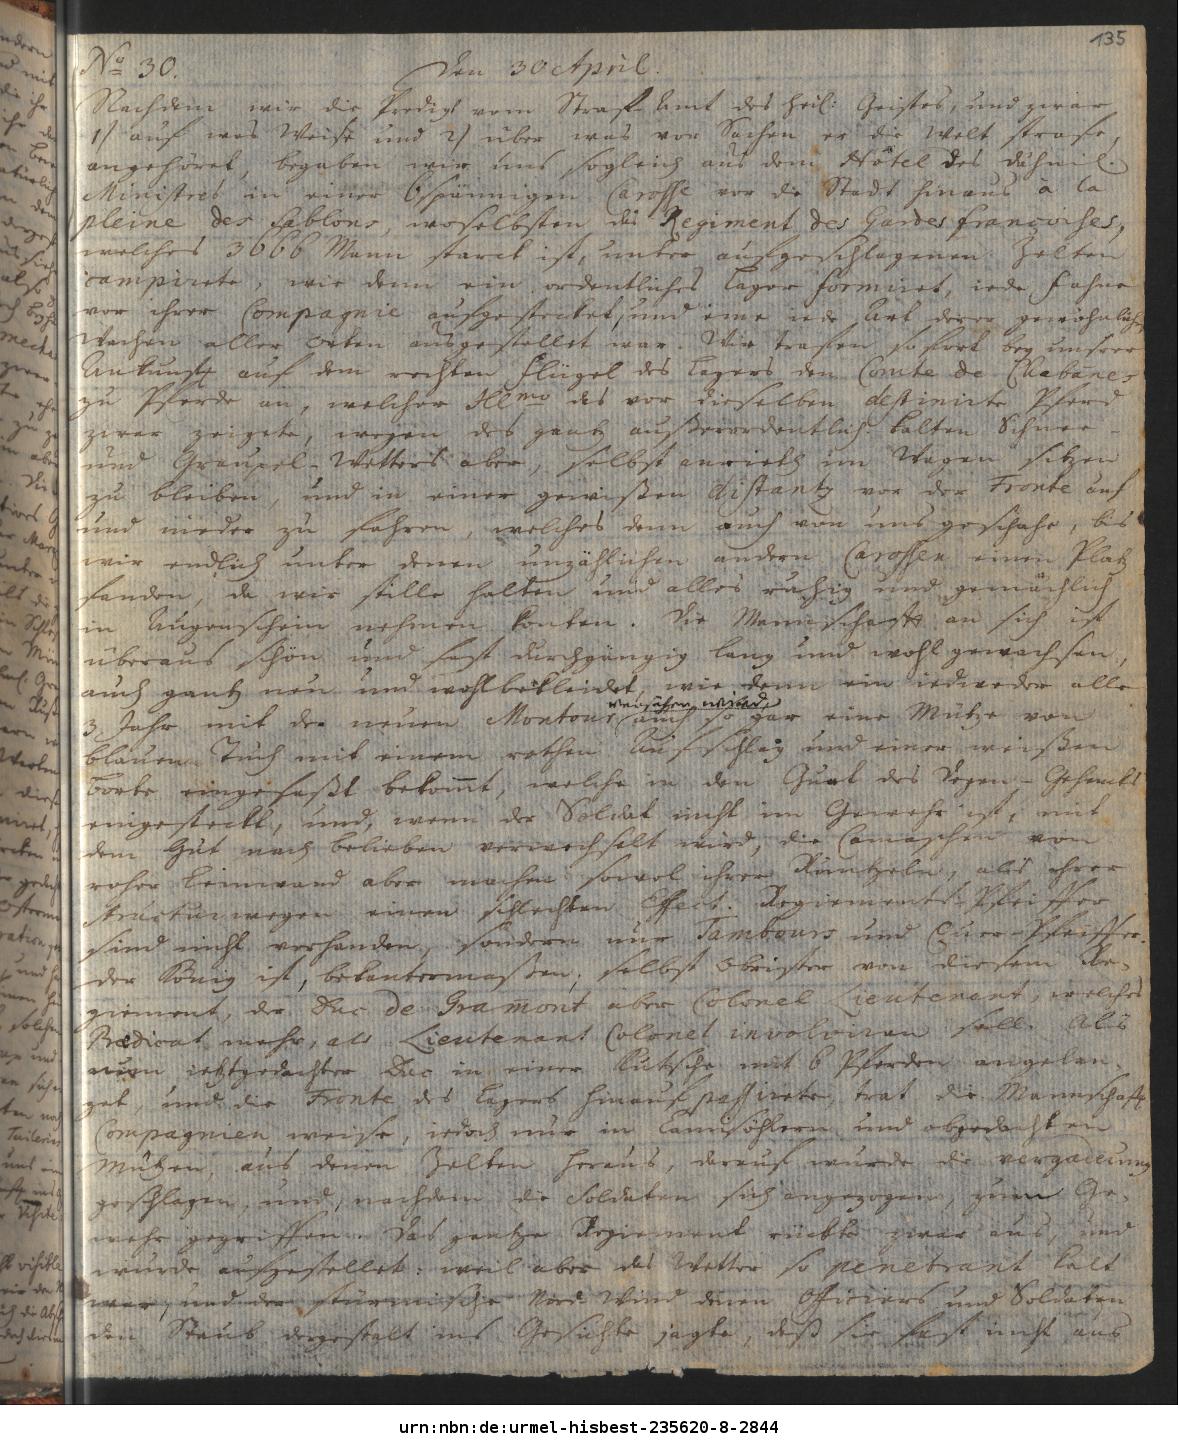 135
No 30. Den 30 April.
Nachdem wir die Predigt vom Straf-Amt des heil: Geistes, und zwar
1) auf was Weise und 2) über was vor Sachen er die Welt strafe,
angehöret, begaben wir uns sogleich aus dem Hôtel des dähnil.
Ministres in einer 6spännigen Carosse vor die Stadt hinaus à la
pleine des Sablons, woselbsten das Regiment des Gardes françoises,
welches 3066 Mann starck ist, unter aufgeschlagenen Zelten
campirete, wie denn ein ordentliches Lager formiret, iede Fahne
vor ihrer Compagnie aufgestecket, und eine iede Art derer gewöhnlichen
Wachen aller Orten ausgestellet war. Wir trafen sofort bey unsrer
Ankunft auf dem rechten Flügel des Lagers den Comte de Chabanes
zu Pferde an, welcher Illmo das vor dieselben destinirte Pferd
zwar zeigete, wegen des gantz außerordentlich kalten Schnee-
und Graupel-Wetters aber, selbst anrieth im Wagen sitzen
zu bleiben, und in einer gewißen distantz vor der Fronte auf
und nieder zu fahren, welches denn auch von uns geschahe, bis
wir endlich unter denen unzählichen andern Carossen einen Platz
fanden, da wir stille halten und alles ruhig und gemächlich
in Augenschein nehmen konten. Die Mannschafft an sich ist
überaus schön und fast durchgängig lang und wohl gewachsen,
auch gantz neu und wohlbekleidet, wie denn ein iedweder alle
versehen wird,
3 Jahr mit der neuen Montour auch so gar eine Mütze von
blauen Tuch mit einem rothen Aufschlag und einer weißen
Borte eingefaßt bekommt, welche in den Gurt des Degen-Gehencks
eingesteckt, und, wenn der Soldat nicht im Gewehr ist, mit
dem Hut nach belieben verwechselt wird, die Camaschen von
roher Leinwand aber machen sowol ihrer Runtzeln, als ihrer
structur wegen einen schlechten Effect. Regiments-Pfeiffer
sind nicht vorhanden, sondern nur Tambours und Quer-Pfeiffer.
der König ist, bekantermaßen, selbst Obrister von diesem Re-
giement, der Duc de Gramont aber Colonel Lieutenant, welches
Prædicat mehr, als Lieutenant Colonel involviren soll. Als
nun ietztgedachter Duc in einer Kutsche mit 6 Pferden angelan-
get, und die Fronte des Lagers hinauf passirete, trat die Mannschafft
Compagnien weise, iedoch nur in Camisöhlern und obgedachten
Mützen, aus denen Zelten heraus, darauf wurde die vergaderung
geschlagen, und, nachdem die Soldaten sich angezogen, zum Ge-
wehr gegriffen. Das gantze Regiement rückte zwar aus, und
wurde aufgestellet: weil aber das Wetter so penetrant kalt
war, und der stürmische Nord-Wind denen Officiers und Soldaten
den Staub dergestalt ins Gesichte jagte, daß sie fast nicht aus
urn:nbn:de:urmel-hisbest-235620-8-2844